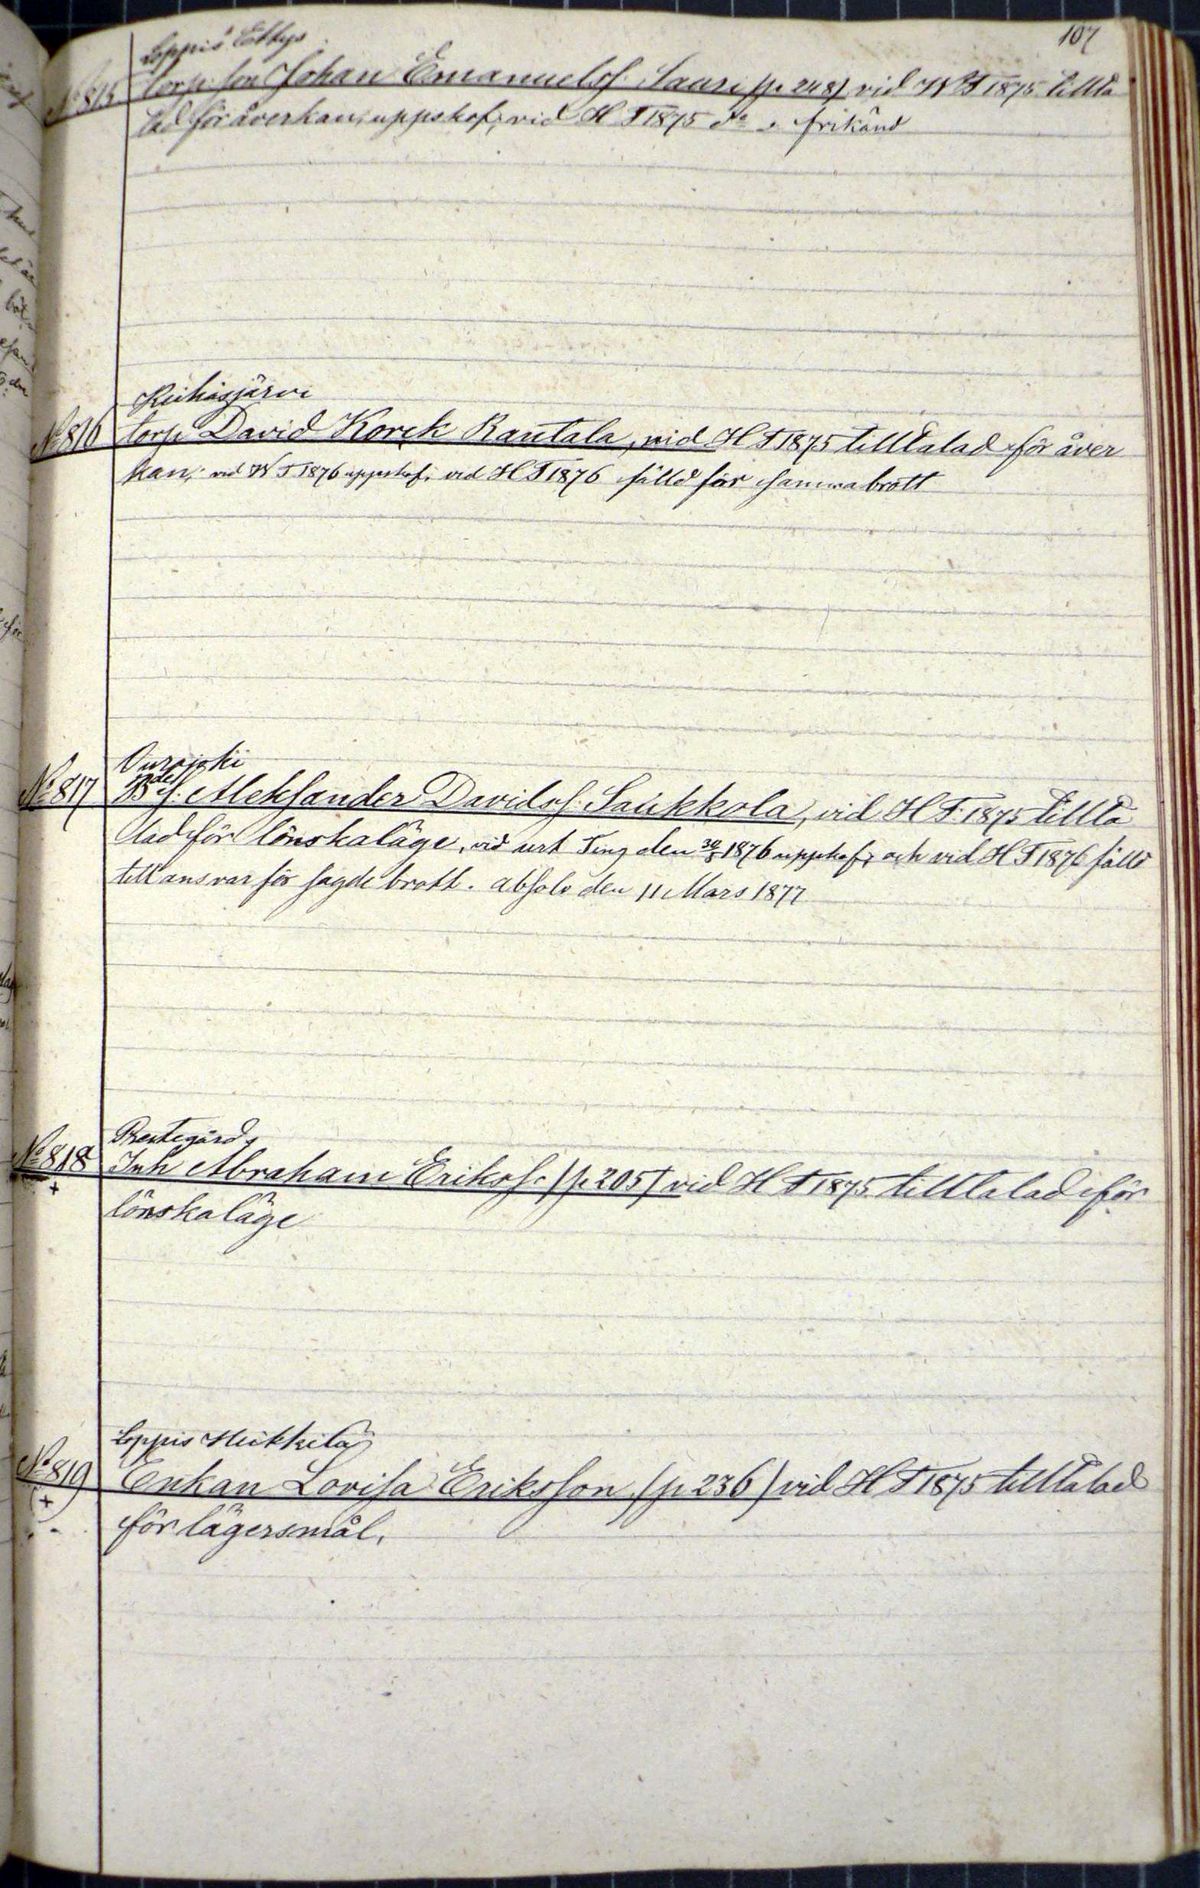 107
Loppis Ettys
No 815 torp. son Johan Emanuelss. Saari (p. 248) vid W T 1875 tillta
lad för åverkan; uppskof; vid H T 1875 do " frikänd
Riihisjärvi
No 816 torp. David Korck Rautala, vid H T 1875 tilltalad för åver
kan; vid W T 1876 uppskof; vid H T 1876 fälld för samma brott
Ourajoki
No 817 Bdes. Aleksander Davidss. Saukkola, vid H T 1875 tillta
lad för lönskaläge, vid urt Ting den 1876 uppskof; och vid H T 1876 fälld
till ansvar för sagde brott. absolv den 11 Mars 1877
Prestegårds
No 818 Inh Abraham Erikss. (p. 205) vid H T 1875 tilltalad för
+
lönskaläge
Loppis Heikkilä
No 819 Enkan Lovisa Eriksson (p. 236) vid H T 1875 tilltalad
(+)
för lägersmål.